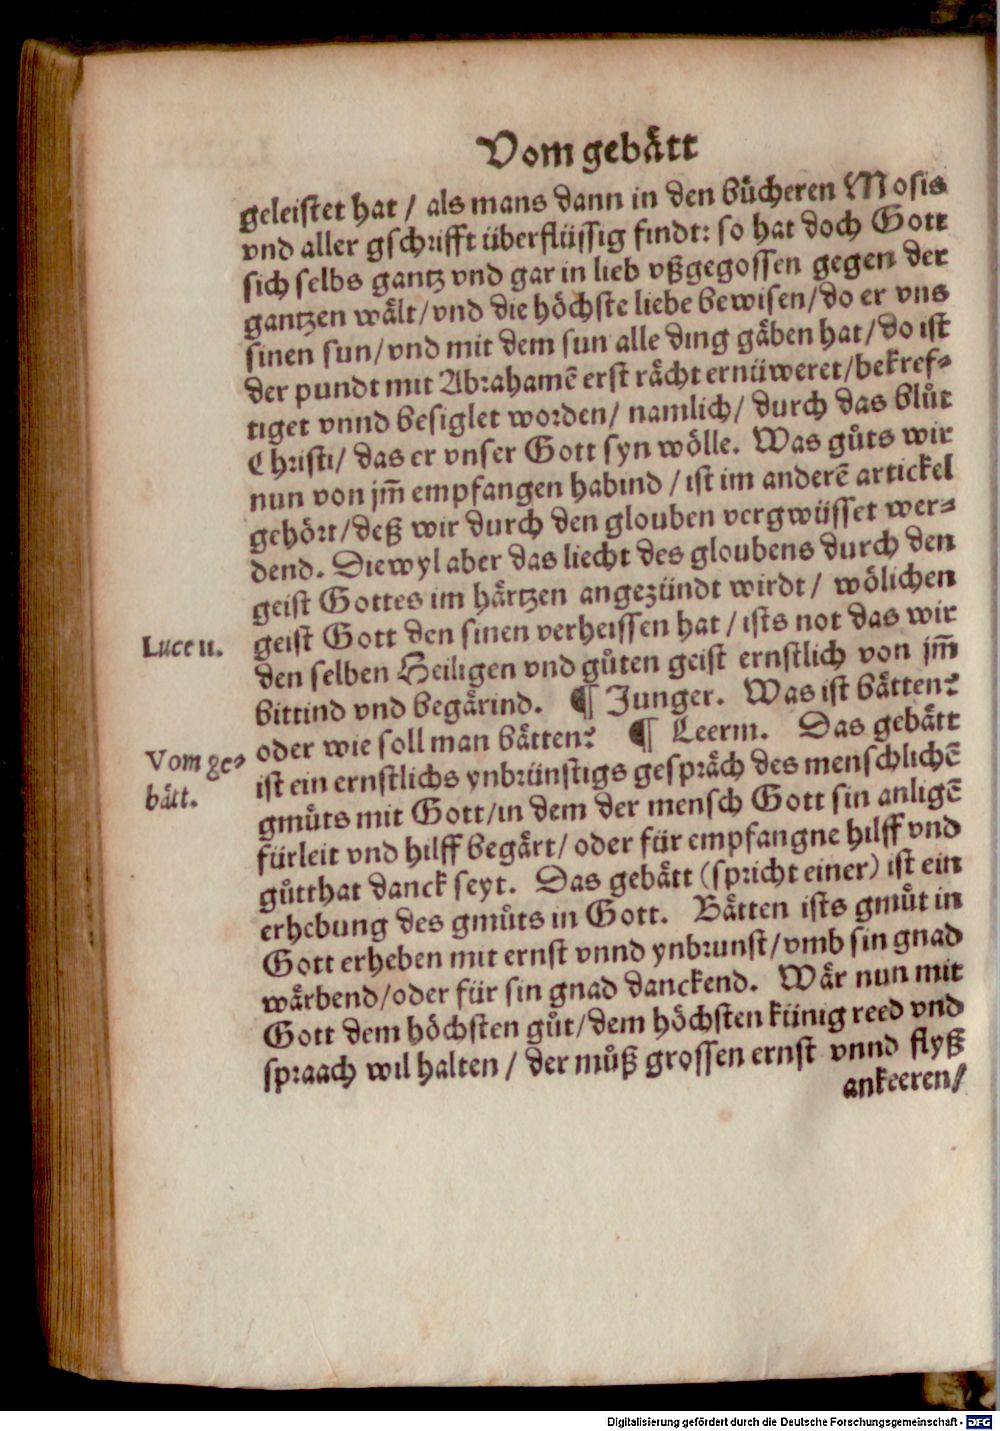 Vom gebätt
geleistet hat / als mans dann in den bücheren Mosis
vnd aller gschrifft überflüssig findt: so hat doch Gott
sich selbs gantz vnd gar in lieb vßgegossen gegen der
gantzen wält/vnd die höchste liebe bewisen/do er vns
sinen sun/vnd mit dem sun alle ding gäben hat/do ist
der pundt mit Abrahamē erst rächt ernüweret/bekref-
tiget vnnd besiglet worden/ namlich/ durch das blůt
Christi/ das er vnser Gott syn wölle. Was gůts wir
nun von jm̄ empfangen habind / ist im anderē artickel
gehört/deß wir durch den glouben vergwüsset wer-
dend. Diewyl aber das liecht des gloubens durch den
geist Gottes im härtzen angezündt wirdt/ wölichen
Luce 11. geist Gott den sinen verheissen hat / ists not das wir
den selben Heiligen vnd gůten geist ernstlich von jm̄
bittind vnd begärind. ¶ Junger. Was ist bätten?
Vom ge- oder wie soll man bätten? ¶ Leerm. Das gebätt
bätt. ist ein ernstlichs ynbrünstigs gespräch des menschlichē
gmůts mit Gott/in dem der mensch Gott sin anligē
fürleit vnd hilff begärt/ oder für empfangne hilff vnd
gůtthat danck seyt. Das gebätt (spricht einer) ist ein
erhebung des gmůts in Gott. Bätten ists gmůt in
Gott erheben mit ernst vnnd ynbrunst/vmb sin gnad
wärbend/oder für sin gnad danckend. Wär nun mit
Gott dem höchsten gůt/dem höchsten künig reed vnd
spraach wil halten / der můß grossen ernst vnnd flyß
ankeeren/
Digitalisierung gefördert durch die Deutsche Forschungsgemeinschaft - DFG